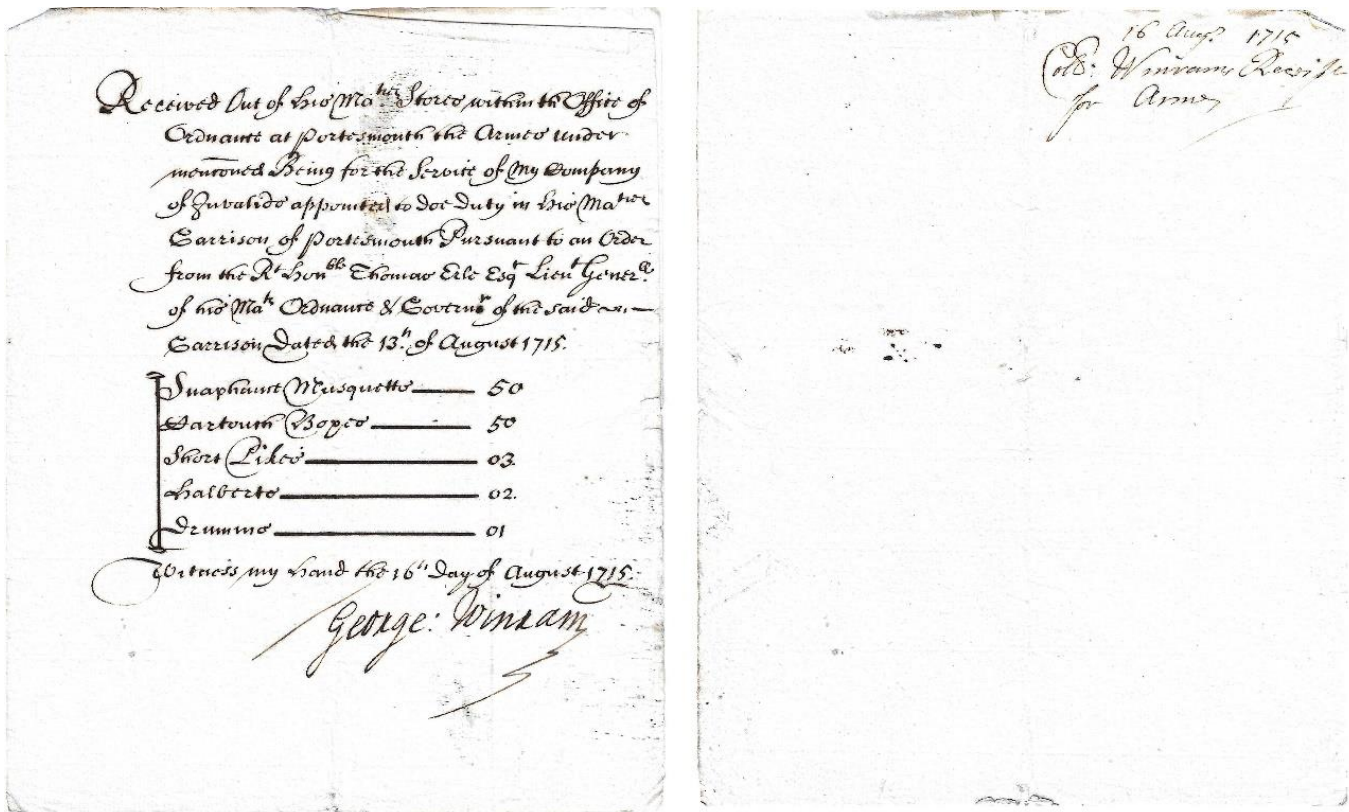 Received Out of his Ma^ties Stores within th Office of
Ordnance at Portesmouth the Armes under
mentioned Being for the Service of My Company
of Invalids appointed to doe duty in his Ma^ties
Garrison of Portesmouth Pursuant to an Order
from the R^t Hon^ble Thomas Erle Esq^r Lieu^t Gener^ll
of his Ma^ts Ordnance & Govern^r of the said
Garrison Dated the 13^th of August 1715.
Snaphance Musquetts 50
Dartouth Boxes 50
Short Pikes 03
Halberts 02.
Drumms 01
Witness my hand the 16^th Day of August 1715.
George: Winram
16 Aug^t 1715
Coll^o: Winrams Receipt
for Armes